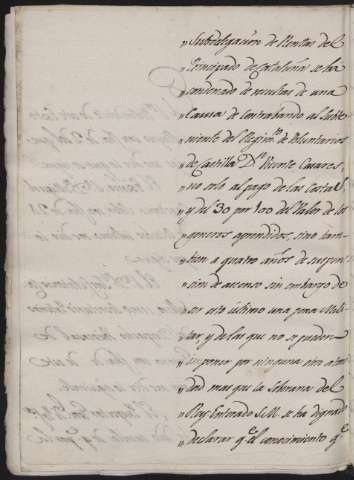 "Subdelegacion de Rentas del
"Principado de Cataluña se ha
"condenado de resultas de una
"Causa de Contrabando al Subte
"niente del Regim.to de Voluntarios
"de Castilla D.n Vicente Casares
"no solo al pago de las Costas
"y al 30 por 100 del Valor de los
"generos aprendidos, sino tam
"bien a quatro años de suspen
"sion de ascenso sin embargo de
"ser esto ultimo una pena Mili
"tar, y de las que no se pueden
"imponer por ninguna otra autori
"dad mas que la Soberana del
"Rey Enterado S.M. se ha dignado
"declarar q.e el conocimiento q.e